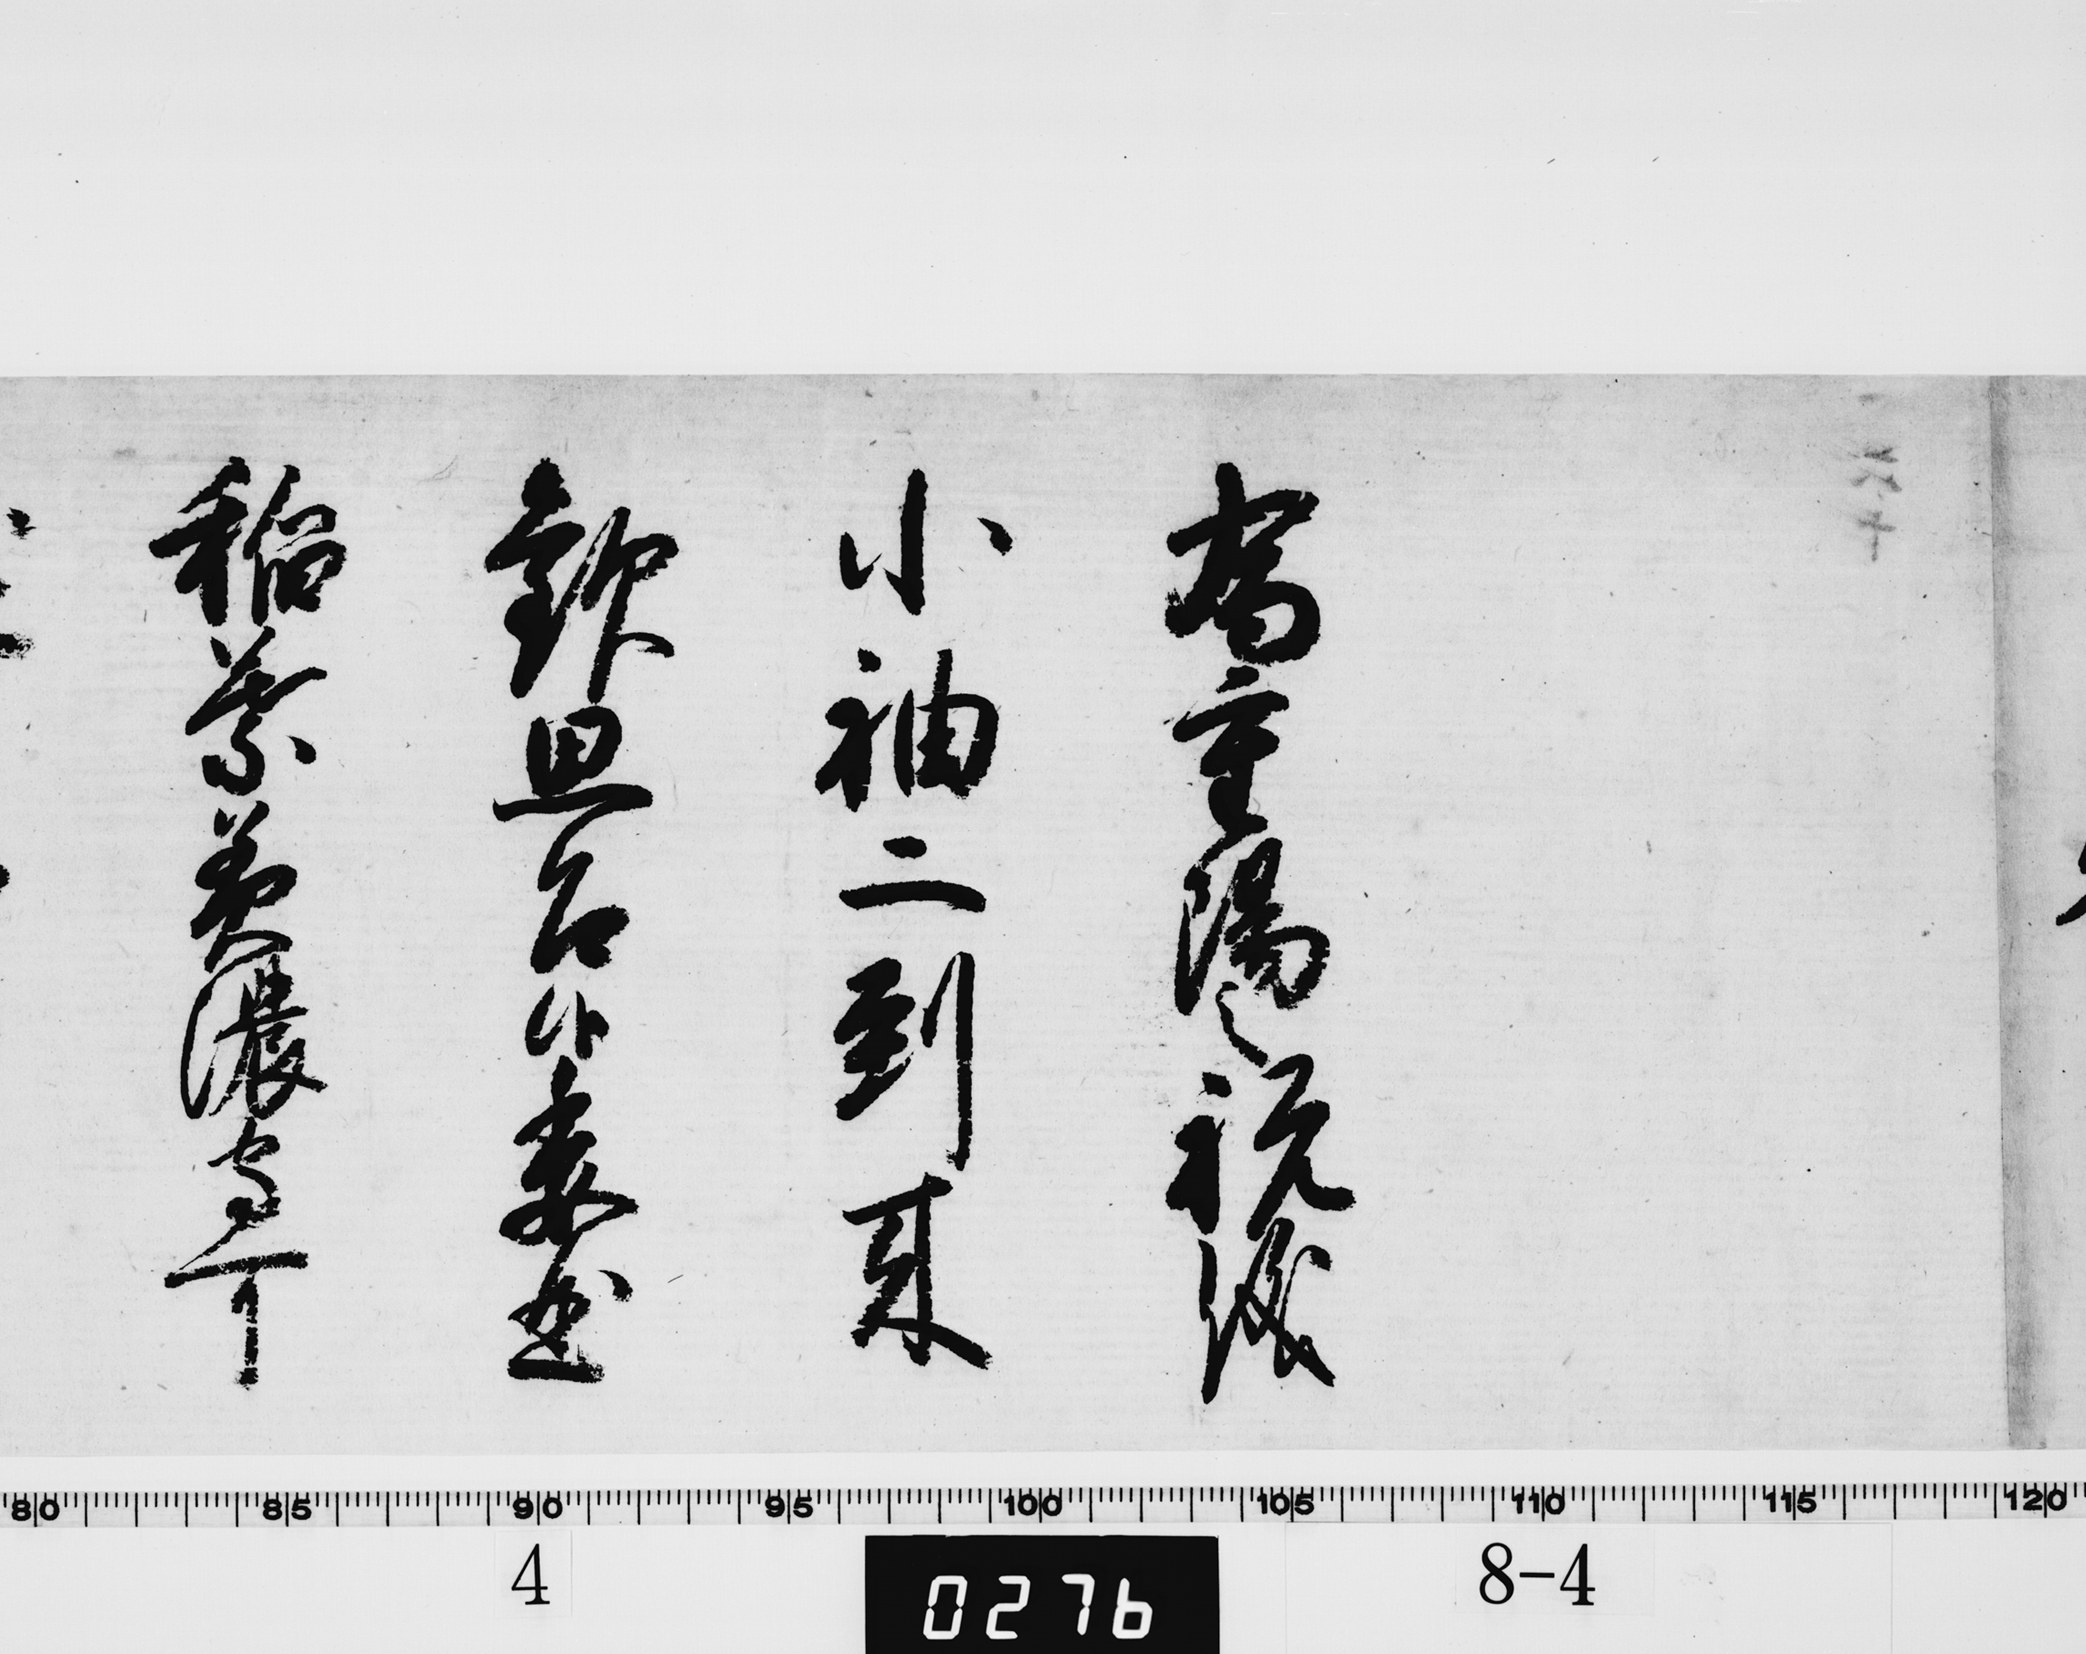 為重陽之祝儀
小袖二到来
歓思召候委曲
稲葉美濃守可
80 85 90 95 100 105 110 115 120
4
0276
8-4